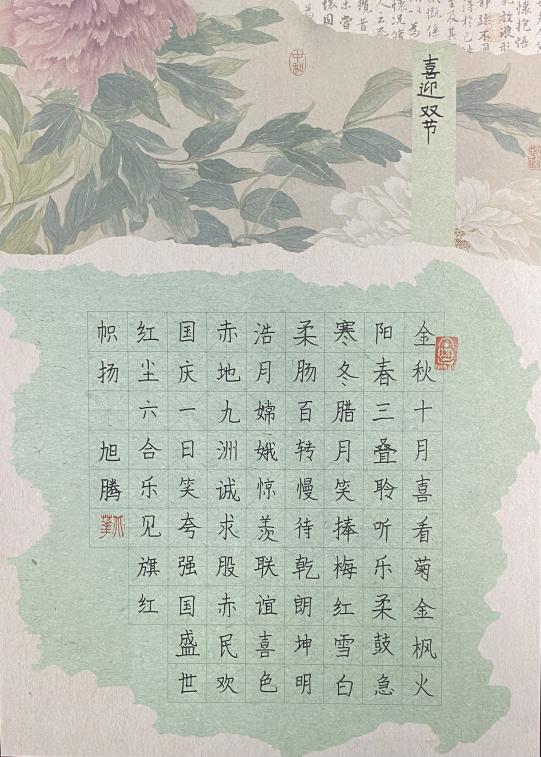 喜迎双节
金秋十月喜看菊金枫火
阳春三叠聆听乐柔鼓急
寒冬腊月笑捧梅红雪白
柔肠百转慢待乾朗坤明
浩月嫦娥惊羡联谊喜色
赤地九洲诚求股赤民欢
国庆一日笑夸强国盛世
红尘六合乐见旗红
帜扬 旭腾